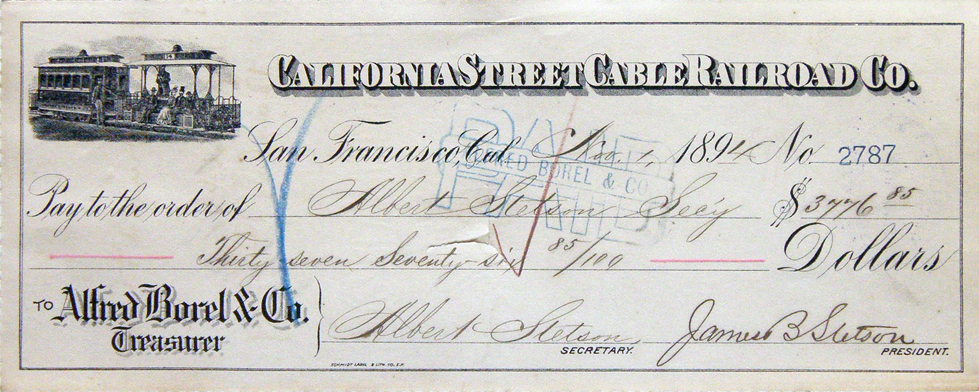 CALIFORNIA STREET CABLE RAILROAD CO.
San Francisco, Cal. Nov. 1, 1894 No. 2787
PAID
ALFRED BOREL & CO.
Pay to the order of Albert Stetson Sec'y $3776 85
Thirty-seven Seventy-six 85/100 Dollars
TO Alfred Borel & Co.
Treasurer
Albert Stetson
SECRETARY.
James B Stetson
PRESIDENT.
SCHMIDT LABEL & LITH. CO. S.F.